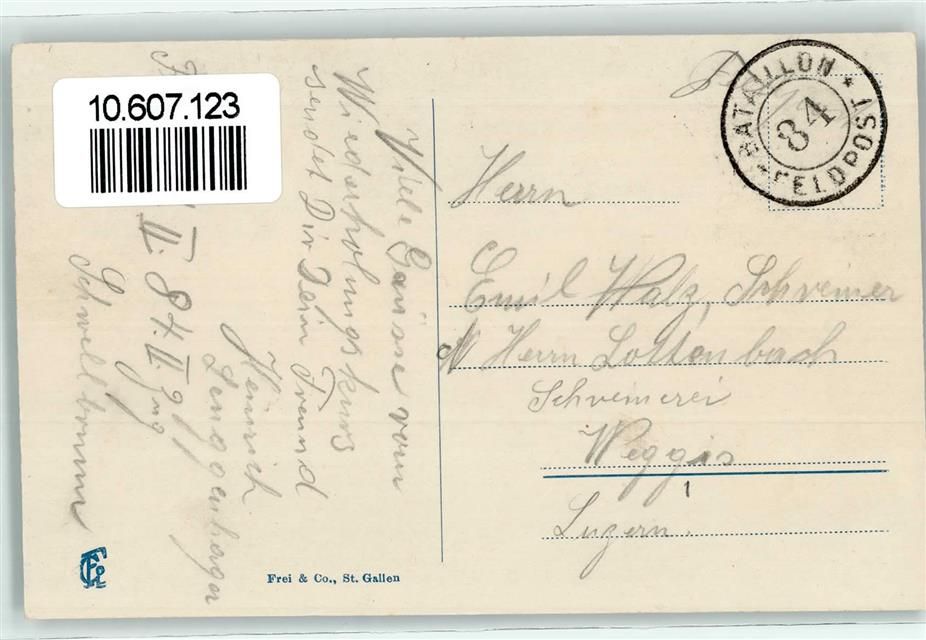 10.607.123
Viele Grüsse vom
Wiederholungskurs
sendet Dir Dein Freund
Heinrich
Lenggenhager
III. 84. II. Zug
Schwellbrunn
BATAILLON * FELDPOST *
84
Herrn
Emil Walz, Schreiner
Herrn Lottenbach
Schreinerei
Weggis
1
Luzern.
Frei & Co., St. Gallen